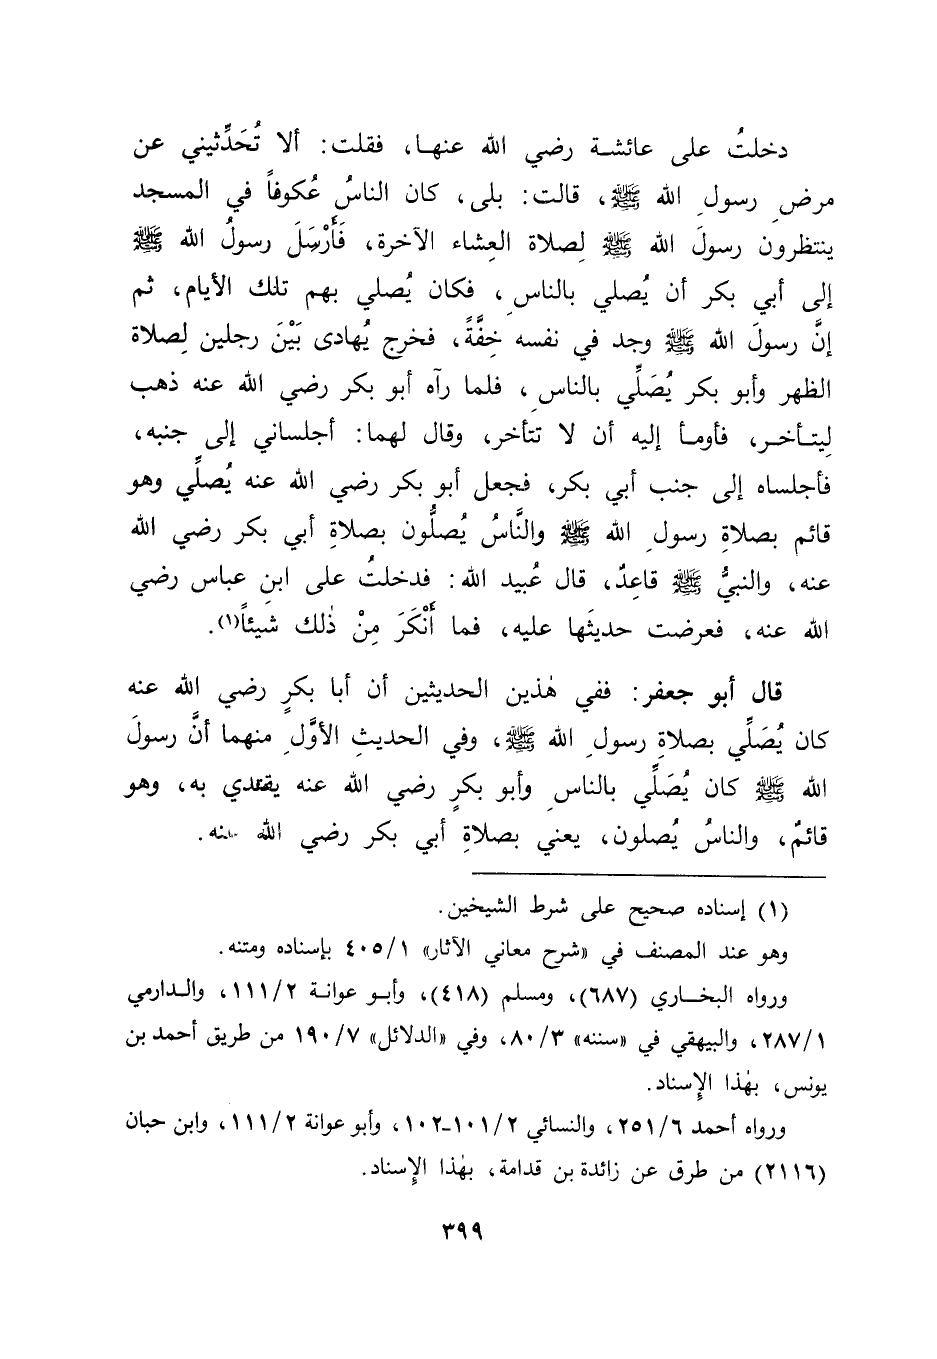 دخلتُ على عائشة رضي الله عنها، فقلت: ألا تُحَدِّثيني عن
مرضِ رسولِ الله ﷺ، قالت: بلى، كان الناسُ عُكوفاً في المسجد
ينتظرون رسولَ الله ﷺ لِصلاة العِشاء الآخرة، فَأَرْسَلَ رسولُ الله ﷺ
إلى أبي بكر أن يُصلي بالناسِ، فكان يُصلي بهم تلك الأيام، ثم
إنَّ رسولَ الله ﷺ وجد في نفسه خِفَّةً، فخرج يُهادى بَيْنَ رجلين لِصلاة
الظهر وأبو بكر يُصَلِّي بالناسِ، فلما رآه أبو بكر رضي الله عنه ذهب
لِيتأخر، فأومأ إليه أن لا تتأخر، وقال لهما: أجلساني إلى جنبه،
فأجلساه إلى جنب أبي بكر، فجعل أبو بكر رضي الله عنه يُصلِّي وهو
قائم بصلاةِ رسولِ الله ﷺ والنَّاسُ يُصلُّون بصلاةِ أبي بكر رضي الله
عنه، والنبيُّ ﷺ قاعِدٌ، قال عُبيد الله: فدخلتُ على ابنِ عباس رضي
الله عنه، فعرضت حديثَها عليه، فما أَنْكَرَ مِنْ ذٰلك شيئاً(١).
قال أبو جعفر: ففي هٰذين الحديثين أن أبا بكرٍ رضي الله عنه
كان يُصَلِّي بصلاةِ رسولِ الله ﷺ، وفي الحديثِ الأوَّلِ منهما أنَّ رسولَ
الله ﷺ كان يُصَلِّي بالناسِ وأبو بكرٍ رضي الله عنه يقتدي به، وهو
قائمٌ، والناسُ يُصلون، يعني بصلاةِ أبي بكر رضي الله عنه.
(١) إسناده صحيح على شرط الشيخين.
وهو عند المصنف في «شرح معاني الآثار» ٤٠٥/١ بإسناده ومتنه.
ورواه البخاري (٦٨٧)، ومسلم (٤١٨)، وأبو عوانة ١١١/٢، والدارمي
٢٨٧/١، والبيهقي في «سننه» ٨٠/٣، وفي «الدلائل» ١٩٠/٧ من طريق أحمد بن
يونس، بهٰذا الإِسناد.
ورواه أحمد ٢٥١/٦، والنسائي ١٠١/٢-١٠٢، وأبو عوانة ١١١/٢، وابن حبان
(٢١١٦) من طرق عن زائدة بن قدامة، بهٰذا الإِسناد.
٣٩٩